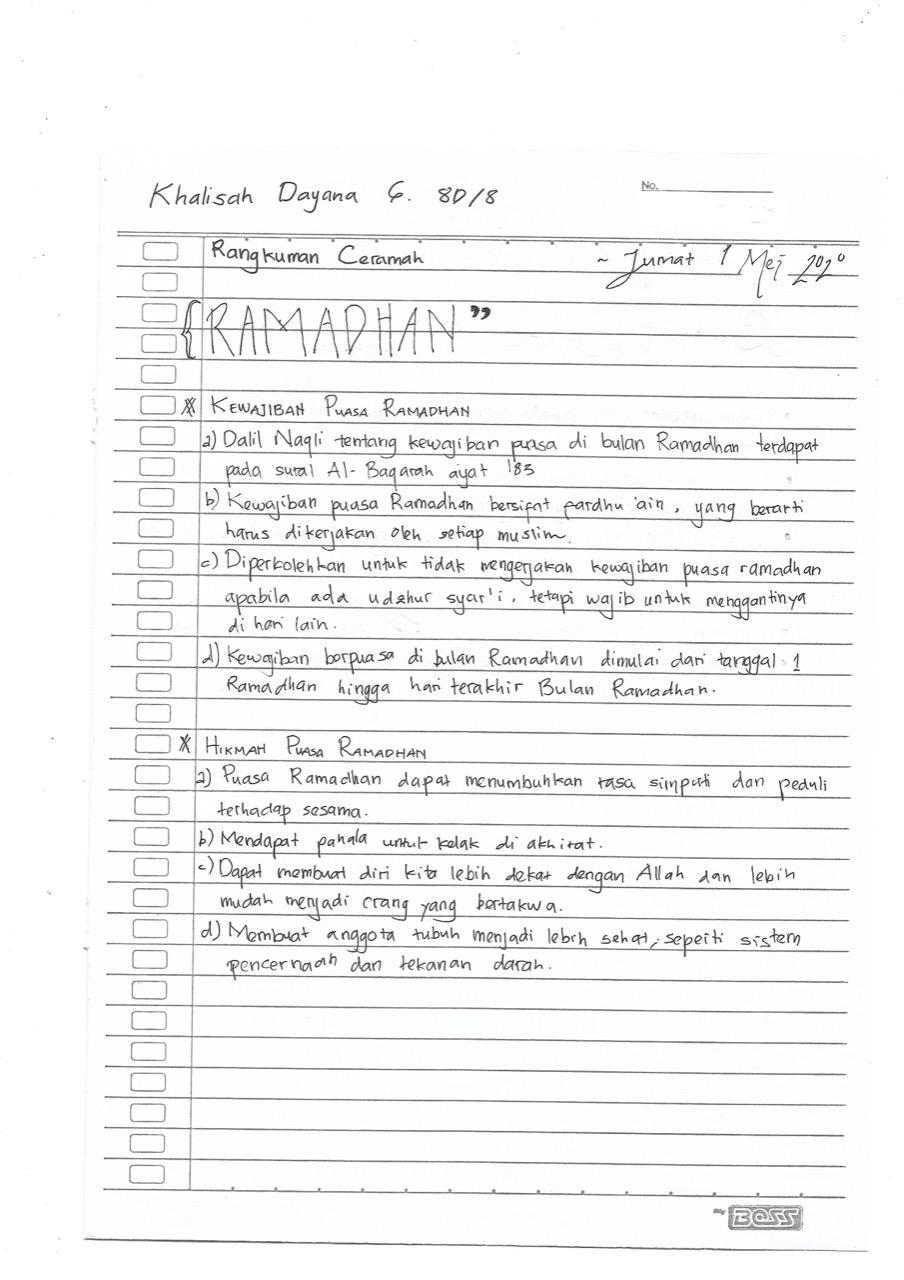 Khalisah Dayana G. 8D/8
No.
Rangkuman Ceramah ~ Jumat 1 Mei 2020
{RAMADHAN"
* KEWAJIBAN PUASA RAMADHAN
a) Dalil Naqli tentang kewajiban puasa di bulan Ramadhan terdapat
pada surat Al-Baqarah ayat 183
b) Kewajiban puasa Ramadhan bersifat fardhu 'ain, yang berarti
harus dikerjakan oleh setiap muslim.
c) Diperbolehkan untuk tidak mengerjakan kewajiban puasa ramadhan
apabila ada udzhur syar'i, tetapi wajib untuk menggantinya
di hari lain.
d) Kewajiban berpuasa di bulan Ramadhan dimulai dari tanggal 1
Ramadhan hingga hari terakhir Bulan Ramadhan.
* HIKMAH PUASA RAMADHAN
a) Puasa Ramadhan dapat menumbuhkan rasa simpati dan peduli
terhadap sesama.
b) Mendapat pahala untuk kelak di akhirat.
c) Dapat membuat diri kita lebih dekat dengan Allah dan lebih
mudah menjadi orang yang bertakwa.
d) Membuat anggota tubuh menjadi lebih sehat, seperti sistem
pencernaah dan tekanan darah.
My BOSS